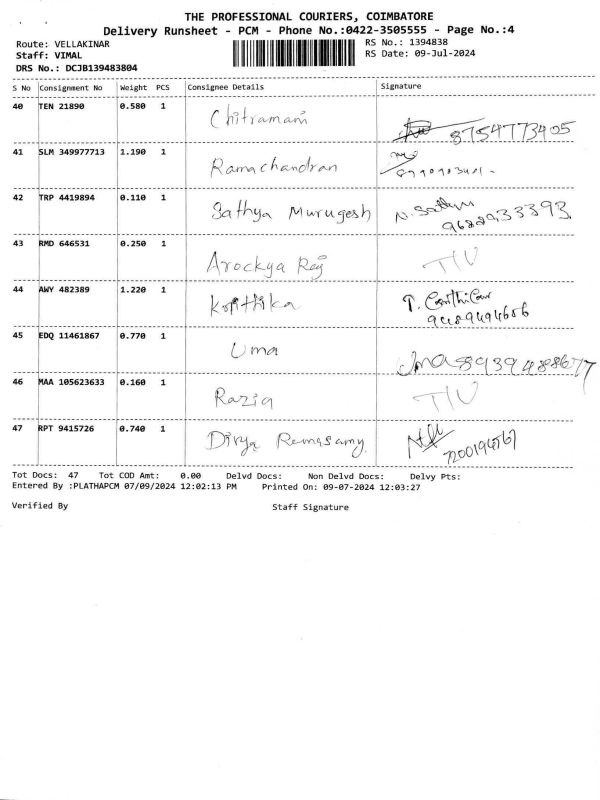 THE PROFESSIONAL COURIERS, COIMBATORE
Delivery Runsheet - PCM - Phone No.:0422-3505555 - Page No.:4
Route: VELLAKINAR
RS No.: 1394838
Staff: VIMAL
RS Date: 09-Jul-2024
DRS No.: DCJB139483804
S No Consignment No Weight PCS Consignee Details Signature
40 TEN 21890 0.580 1 Chitramani 8754773405
41 SLM 349977713 1.190 1 Ramachandran
42 TRP 4419894 0.110 1 Sathya Murugesh N. Sathya 9688933393
43 RMD 646531 0.250 1 Arockya Raj T/U
44 AWY 482389 1.220 1 Krithika T.
45 EDQ 11461867 0.770 1 Uma Uma
46 MAA 105623633 0.160 1 Razia T/U
47 RPT 9415726 0.740 1 Divya Ramasamy
Tot Docs: 47 Tot COD Amt: 0.00 Delvd Docs: Non Delvd Docs: Delvy Pts:
Entered By :PLATHAPCM 07/09/2024 12:02:13 PM Printed On: 09-07-2024 12:03:27
Verified By Staff Signature